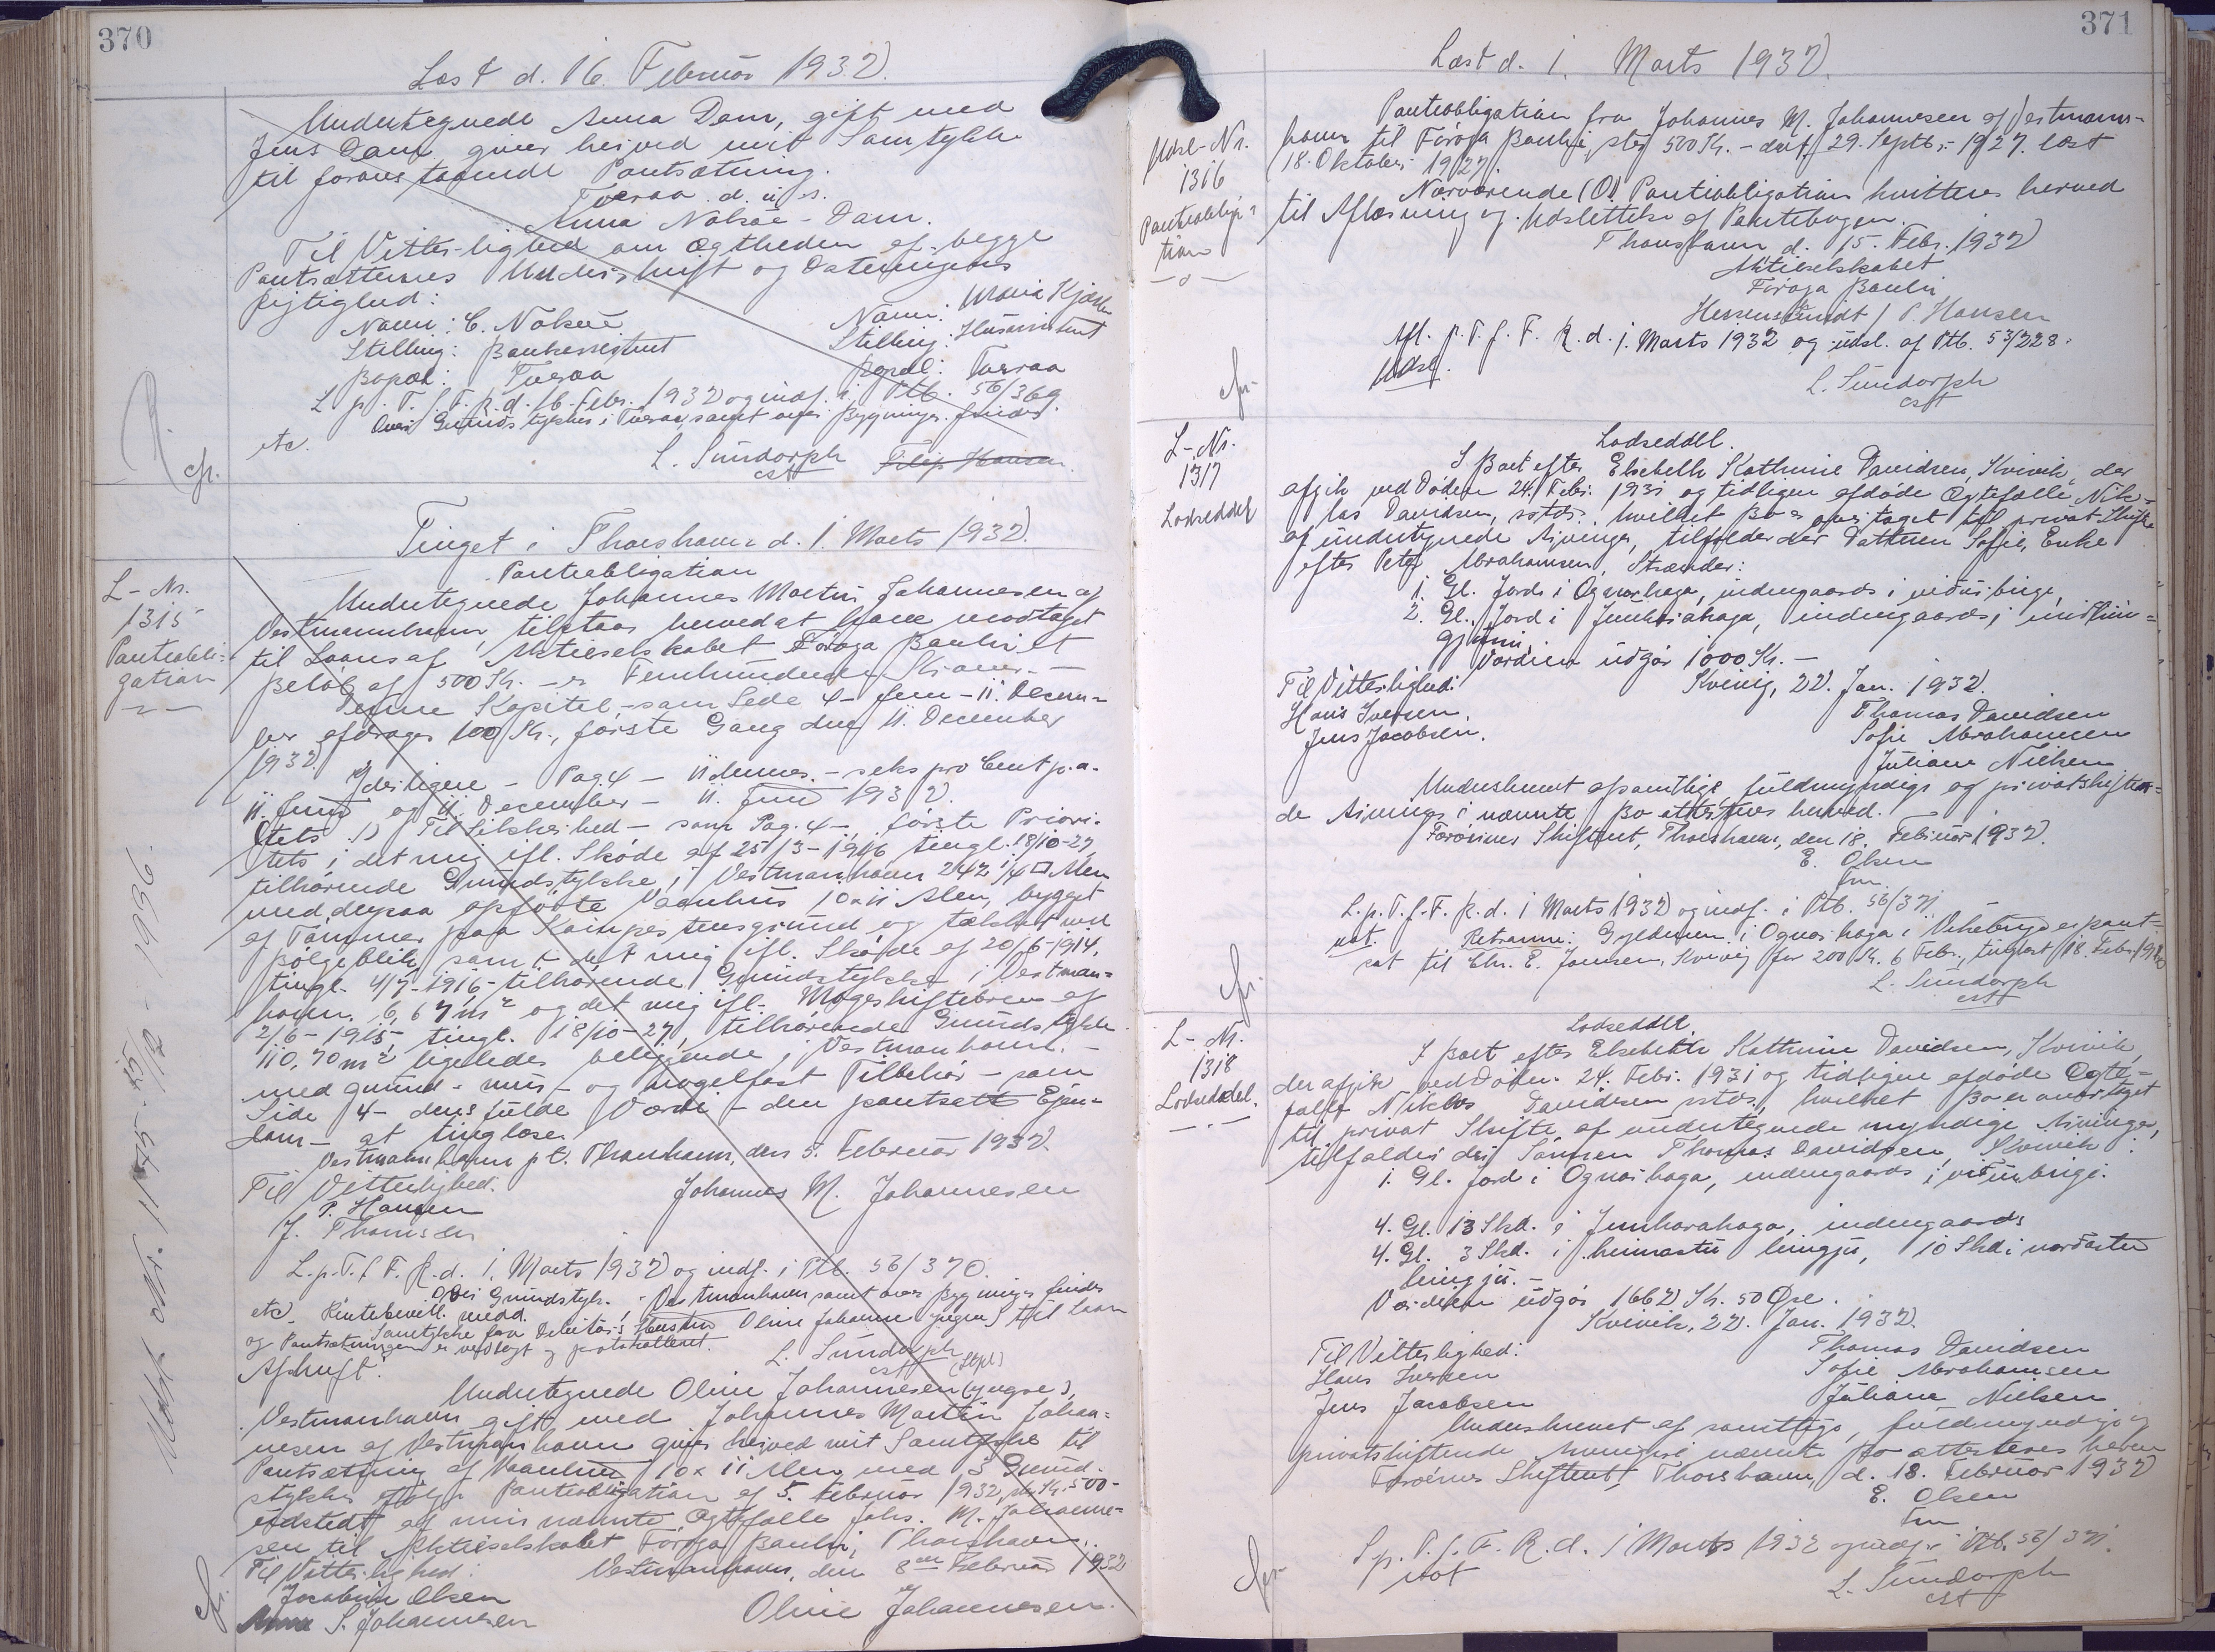 370
Læst d. 16. Februar 1932.
Undertegnede Anna Dam, gift med
Jens Dam giver herved mit Samtykke
til foranstaaende Pantsætning.
Tveraa d. u. s.
Anna Nolsøe-Dam.
Til Vitterlighed om Ægtheden af begge
Pantsætternes Underskrift og Dateringens
Rigtighed:
Navn: C. Nolsøe Navn: Maria Kjølbro
Stilling: Bankassistent Stilling: Husassistent
Bopæl: Tveraa Bopæl: Tveraa
L. p. T. f. F. R. d. 16. Febr. 1932 og indf. i Ptb. 56/369
Over Grundstykket i Tveraa, samt over Bygninger findes
etc.
L. Sundorph Filip Hansen.
cst
Tinget i Thorshavn d. 1. Marts 1932.
L-Nr.
1315
Panteobli-
gation
Panteobligation
Undertegnede Johannes Martin Johannesen af
Vestmannhavn, tilstaar herved at have modtaget
til Laans af Aktieselskabet Føroya Banki et
Beløb af 500 Kr. - er Femhundrede Kroner. -
Denne Kapital - som Side 4 - Juni - 11. Decem-
ber afdrages 100 Kr., første Gang den 11. December
1932.
Yderligere - Pag 4 - 11 dennes. - seks pro Cent p. a.
11. Juni og 11. December - 11. Juni 1932.
Til Sikkerhed - som Pag. 4 - første Priori-
tets i det mig ifl. Skøde af 25/3-1916 tingl. 18/10-27
tilhørende Grundstykke i Vestmanhavn 242 1/4 □ Alen
med derpaa opførte Vaanhus 10x11 Alen, bygget
af Tømmer paa Kampestensgrund og tækket med
Bølgeblik samt det mig ifl. Skøde af 20/6-1914,
tingl. 4/7-1916 - tilhørende Grundstykke i Vestman-
havn. 6,67 m² og det mig ifl. Mageskiftebrev af
2/6-1915, tingl. 18/10-27, tilhørende Grundstykke
110,70 m² ligeledes beliggende i Vestmanhavn. -
med grund- mur- og nagelfast Tilbehør - som
Side 4 - dens fulde Værdi - den pantsatte Ejen-
dom - at tinglæse.
Vestmanhavn pt. Thorshavn, den 5. Februar 1932.
Til Vitterlighed.
P. Hansen Johannes M. Johannesen
J. Thomsen
L. p. T. f. F. R. d. 1. Marts 1932 og indf. i Ptb. 56/370.
Over Grundstyk. i Vestmanhavn samt over Bygninger findes
etc. Rentebevill. medd.
Samtykke fra Debitors Hustru Oline Johanne Jensen til Laan
og Pantsætningen er vedlagt og protokolleret.
L. Sundorph
cst (Stpl)
Afskrift:
Undertegnede Oline Johannesen (yngre),
Vestmanhavn gift med Johannes Martin Johan-
nesen af Vestmanhavn giver herved mit Samtykke til
Pantsætning af Vaanhus 10 x 11 Alen med 3 Grund-
stykker ifølge Panteobligation af 5. Februar 1932, stor Kr. 500-
udstedt af min nævnte Ægtefælle Johs. M. Johanne-
sen til Aktieselskabet Føroya Banki, Thorshavn.
Til Vitterlighed: Vestmanhavn, den 8 Februar 1932
Jacobine Olsen
S. Johannesen Oline Johannesen.
371
Læst d. 1. Marts 1932.
Udsl-Nr.
1316
Panteobliga-
tion
Panteobligation fra Johannes M. Johannesen af Vestmann-
havn til Føroya Banki, stor 500 Kr. - dat. 29. Septb. 1927. læst
18. Oktober 1927.
Nærværende (O) Panteobligation kvitteres herved
til Aflæsning og Udslettelse af Pantebogen.
Thorshavn d. 15. Febr. 1932
Aktieselskabet
Føroya Banki
Hessenschmidt / P. Hansen
Afl. p. T. f. F. R. d. 1. Marts 1932 og udsl. af Ptb. 53/228.
Udsl.
L. Sundorph
cst
L-Nr.
1317
Lodseddel
Lodseddel.
I Boet efter Elsebeth Kathrine Davidsen, Kvivik, der
afgik ved Døden 24. Febr. 1931 og tidligere afdøde Ægtefælle Nik-
las Davidsen, sstds. hvilket Bo er overtaget til privat Skifte
af undertegnede Arvinger, tilfalder der Datteren Sofie, Enke
efter Peter Abrahamsen, Strænder:
1. Gl. Jord i Ognarhaga, indengaards i
2. Gl. Jord i Junkarahaga, indengaards i
Værdien udgør 1000 Kr. -
Til Vitterlighed: Kvivig, 22. Jan. 1932.
Hans Iversen. Thomas Davidsen
Jens Jacobsen. Sofie Abrahamsen
Juliane Nielsen
Underskrevet af samtlige fuldmyndige og privatskiften-
de Arvinger i nævnte Bo attesteres herved.
Færøernes Skifteret, Thorshavn, den 18. Februar 1932.
E. Olsen
fm.
L. p. T. f. F. R. d. 1 Marts 1932 og indf. i Ptb. 56/371
not. Retsanm: Gyldenen i Ognarhaga i er pant-
sat til Chr. E. Jensen, Kvivig for 200 Kr. 6 Febr., tinglæst 18. Febr. 19
L. Sundorph
cst
L-Nr.
1318
Lodseddel.
Lodseddel
I Boet efter Elsebeth Kathrine Davidsen, Kvivik
der afgik ved Døden 24. Febr. 1931 og tidligere afdøde Ægte-
fælle Niklas Davidsen sstds., hvilket Bo er overtaget
til privat Skifte af undertegnede myndige Arvinger,
tilfalder der Sønnen Thomas Davidsen, Kvivik:
1. Gl. Jord i Ognarhaga, indengaards i
4. Gl. 13 Skd. i Junkarahaga, indengaards
4. Gl. 3 Skd. i heimastu lingju, 10 Skd i nordastu
lingju. -
Værdien udgør 1662 Kr. 50 Øre.
Kvivik, 22. Jan. 1932.
Til Vitterlighed: Thomas Davidsen
Hans Iversen Sofie Abrahamsen
Jens Jacobsen Juliane Nielsen
Underskrevet af samtlige, fuldmyndige og
privatskiftende Arvinger i nævnte Bo attesteres herved
Færøernes Skifteret, Thorshavn, d. 18. Februar 1932
E. Olsen
fm
L. p. T. f. F. R. d. 1 Marts 1932 og indf. i Ptb. 56/371.
not
L. Sundorph
cst